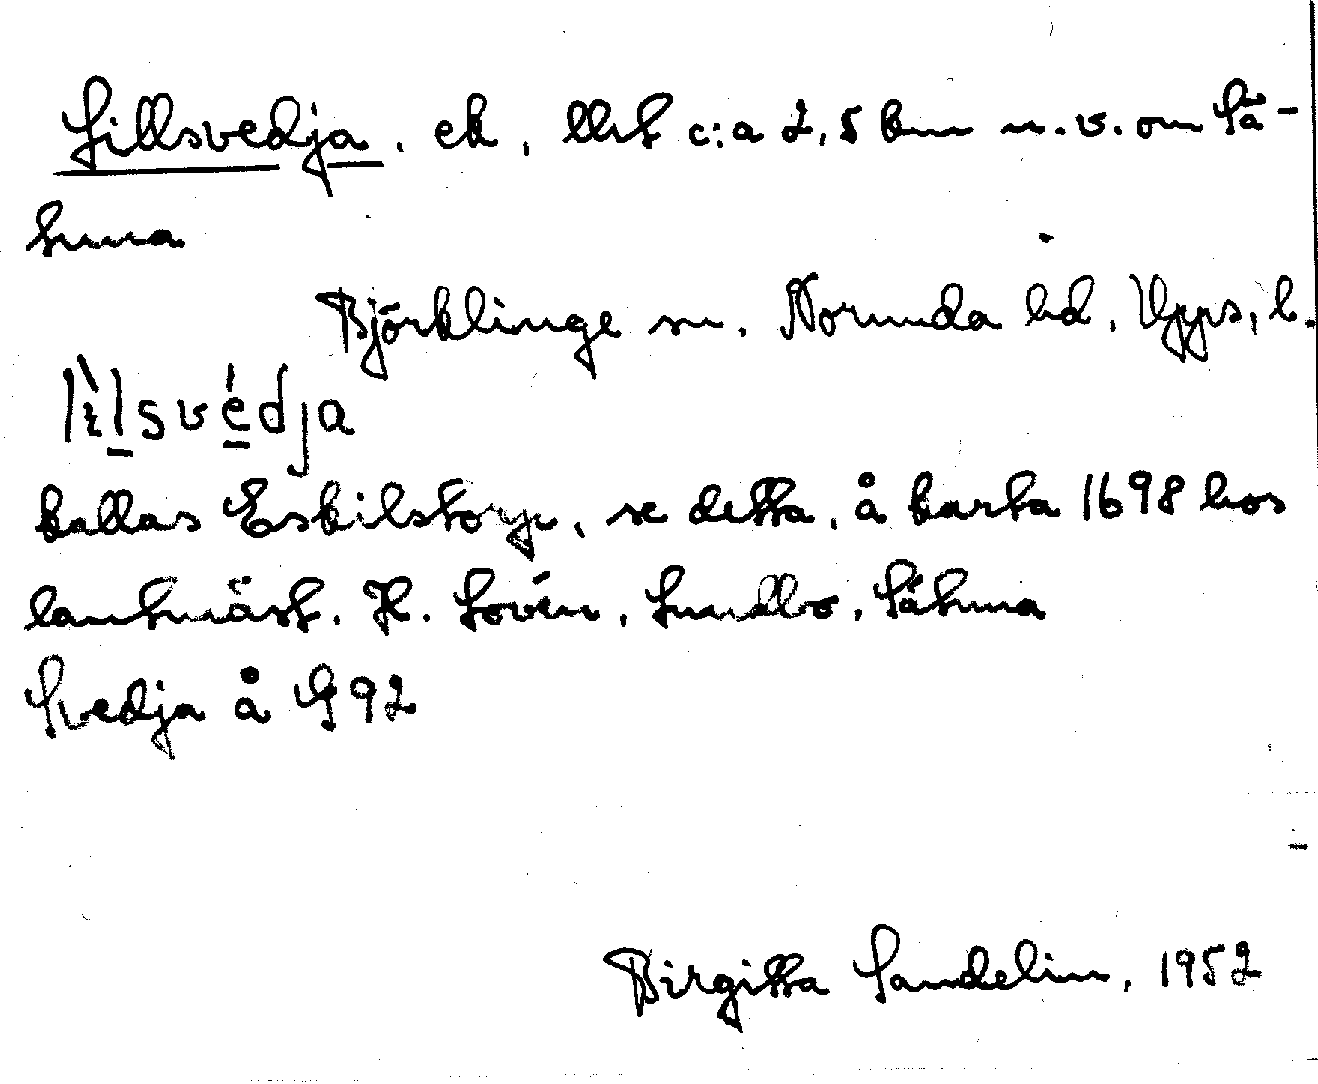 Lillsvedja. ek, llht c:a 2,5 km n.v. om Sä-
tuna
Björklinge sn. Norunda hd, Upps, l.
lìlsvédja
kallas Eskilstorp, se detta, å karta 1698 hos
lantmäst. K. Lovén, Lundbo, Sätuna
Svedja å G 92
Birgitta Sandelin, 1952